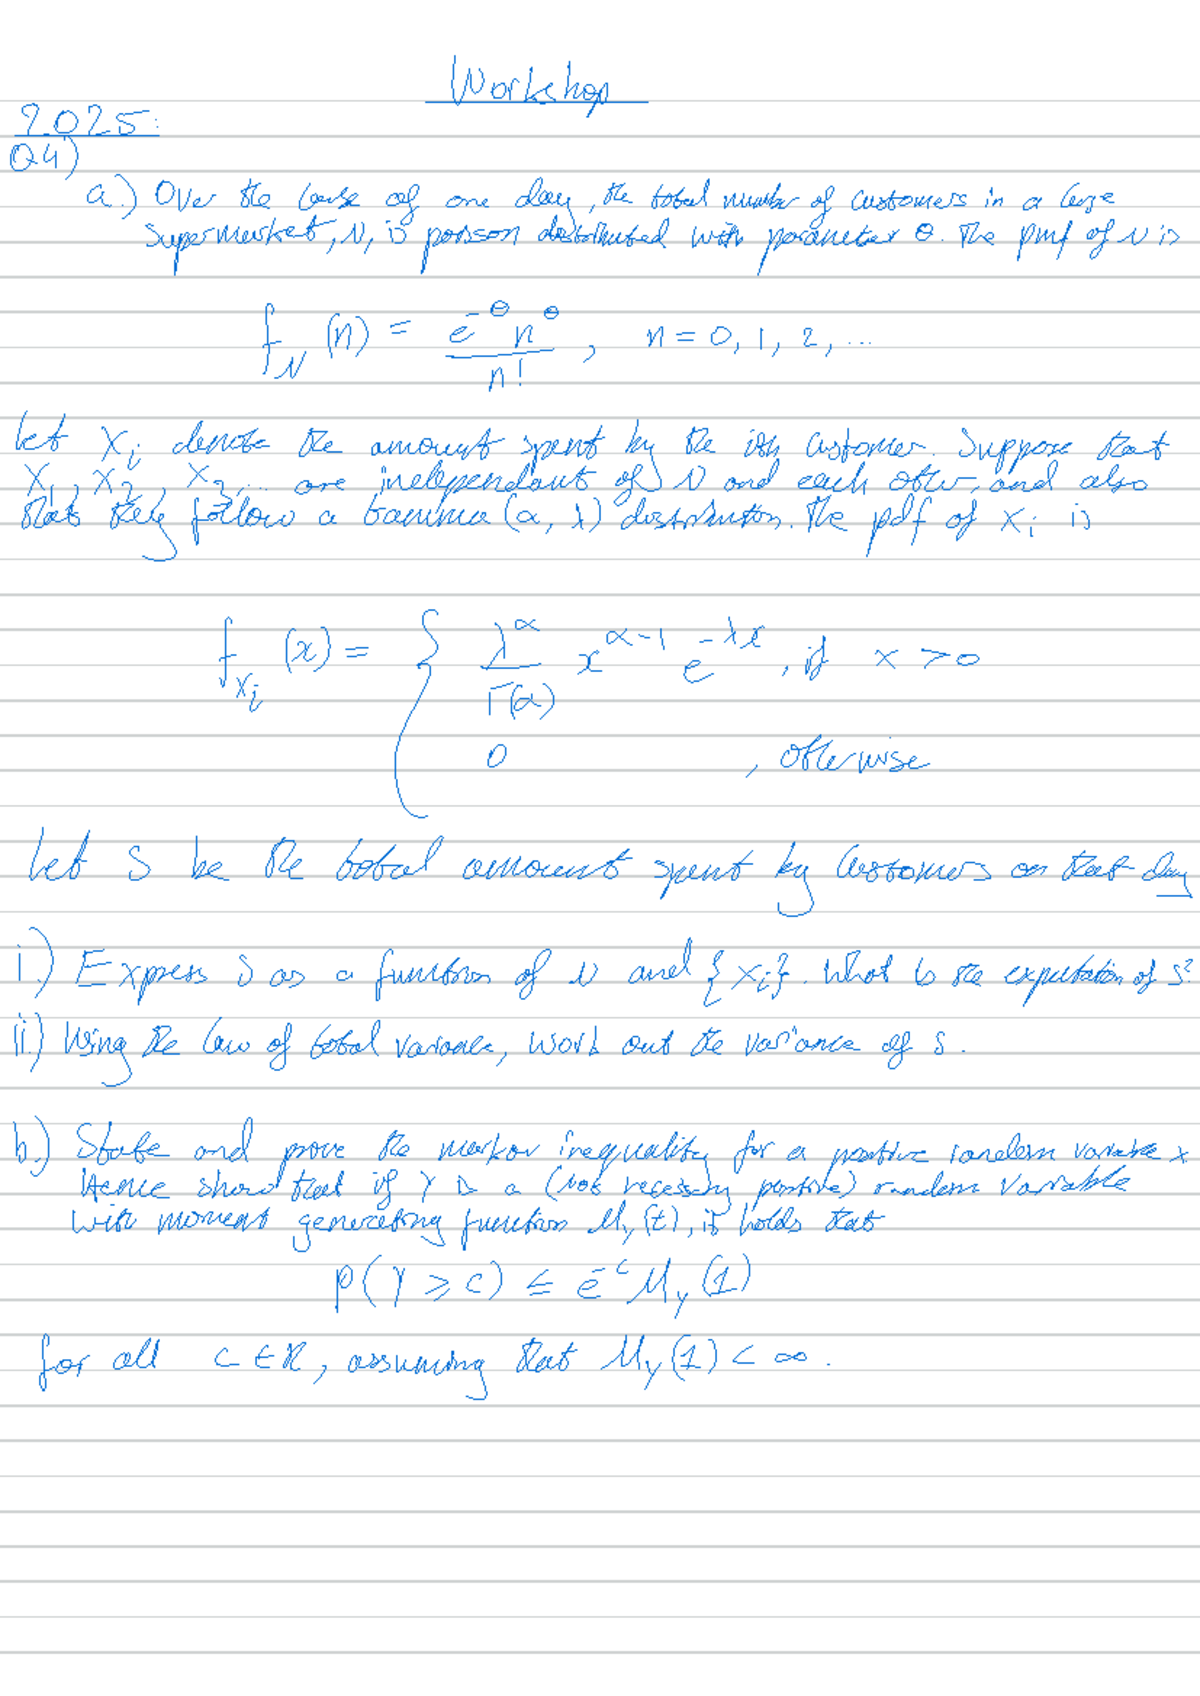 Workshop
2025:
Q4)
a.) Over the Course of one day, the total number of customers in a large
Supermarket, N, is poisson distributed with parameter θ. The pmf of N is
f_N (n) = e^{-θ} n^θ / n! , n = 0, 1, 2, ...
Let X_i denote the amount spent by the ith Customer. Suppose that
X_1, X_2, X_3, ... are independant of N and each other, and also
that they follow a Gamma (α, λ) distribution. The pdf of X_i is
f_{X_i} (x) = { λ^α / Γ(α) x^{α-1} e^{-λx} , if x > 0
0 , otherwise
Let S be the total amount spent by Customers on that day
i.) Express S as a function of N and {X_i}. What is the expectation of S?
ii.) Using the law of total variance, work out the variance of S.
b.) State and prove the markov inequality for a positive random variable X
Hence show that if Y is a (not necessary positive) random variable
With moment generating function M_Y(t), it holds that
P(Y ≥ c) ≤ e^{-c} M_Y(1)
for all c ∈ ℝ, assuming that M_Y(1) < ∞.